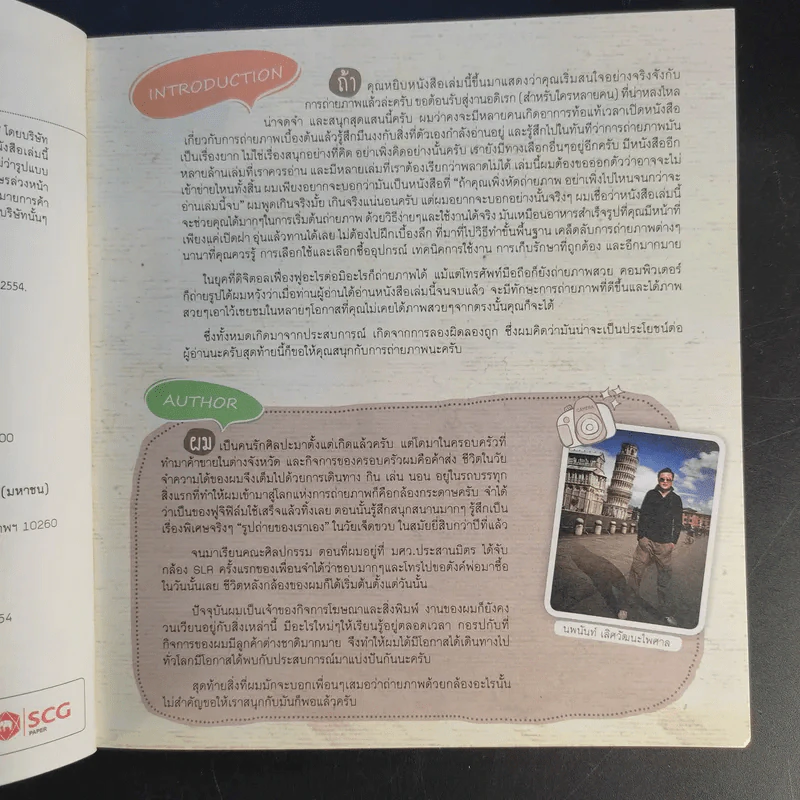 โดยบริษัท
หนังสือเล่มนี้
ไม่ว่ารูปแบบ
ษรล่วงหน้า
หมายการค้า
บริษัทนั้นๆ
2554.
00
(มหาชน)
เทพฯ 10260
54
SCG
PAPER
INTRODUCTION
ถ้า คุณหยิบหนังสือเล่มนี้ขึ้นมาแสดงว่าคุณเริ่มสนใจอย่างจริงจังกับ
การถ่ายภาพแล้วล่ะครับ ขอต้อนรับสู่งานอดิเรก (สำหรับใครหลายคน) ที่น่าหลงใหล
น่าจดจำ และสนุกสุดแสนนี้ครับ ผมว่าคงจะมีหลายคนเกิดอาการท้อแท้เวลาเปิดหนังสือ
เกี่ยวกับการถ่ายภาพเบื้องต้นแล้วรู้สึกมึนงงกับสิ่งที่ตัวเองกำลังอ่านอยู่ และรู้สึกไปในทันทีว่าการถ่ายภาพมัน
เป็นเรื่องยาก ไม่ใช่เรื่องสนุกอย่างที่คิด อย่าเพิ่งคิดอย่างนั้นครับ เรายังมีทางเลือกอื่นๆอยู่อีกครับ มีหนังสืออีก
หลายล้านเล่มที่เราควรอ่าน และมีหลายเล่มที่เราต้องเรียกว่าพลาดไม่ได้ เล่มนี้ผมต้องขอออกตัวว่าอาจจะไม่
เข้าข่ายไหนทั้งสิ้น ผมเพียงอยากจะบอกว่ามันเป็นหนังสือที่ “ถ้าคุณเพิ่งหัดถ่ายภาพ อย่าเพิ่งไปไหนจนกว่าจะ
อ่านเล่มนี้จบ” ผมพูดเกินจริงมั้ย เกินจริงแน่นอนครับ แต่ผมอยากจะบอกอย่างนั้นจริงๆ ผมเชื่อว่าหนังสือเล่มนี้
จะช่วยคุณได้มากๆในการเริ่มต้นถ่ายภาพ ด้วยวิธีง่ายๆและใช้งานได้จริง มันเหมือนอาหารสำเร็จรูปที่คุณมีหน้าที่
เพียงแค่เปิดฝา อุ่นแล้วทานได้เลย ไม่ต้องไปฝึกเบื้องลึก ที่มาที่ไปวิธีทำขั้นพื้นฐาน เคล็ดลับการถ่ายภาพต่างๆ
นานาที่คุณควรรู้ การเลือกใช้และเลือกซื้ออุปกรณ์ เทคนิคการใช้งาน การเก็บรักษาที่ถูกต้อง และอีกมากมาย
ในยุคที่ดิจิตอลเฟื่องฟูอะไรต่อมิอะไรก็ถ่ายภาพได้ แม้แต่โทรศัพท์มือถือก็ยังถ่ายภาพสวย คอมพิวเตอร์
ก็ถ่ายรูปได้ผมหวังว่าเมื่อท่านผู้อ่านได้อ่านหนังสือเล่มนี้จนจบแล้ว จะมีทักษะการถ่ายภาพที่ดีขึ้นและได้ภาพ
สวยๆเอาไว้เชยชมในหลายๆโอกาสที่คุณไม่เคยได้ภาพสวยๆจากตรงนั้นคุณก็จะได้
ซึ่งทั้งหมดเกิดมาจากประสบการณ์ เกิดจากการลองผิดลองถูก ซึ่งผมคิดว่ามันน่าจะเป็นประโยชน์ต่อ
ผู้อ่านนะครับสุดท้ายนี้ก็ขอให้คุณสนุกกับการถ่ายภาพนะครับ
AUTHOR
ผม เป็นคนรักศิลปะมาตั้งแต่เกิดแล้วครับ แต่โตมาในครอบครัวที่
ทำมาค้าขายในต่างจังหวัด และกิจการของครอบครัวผมคือค้าส่ง ชีวิตในวัย
จำความได้ของผมจึงเต็มไปด้วยการเดินทาง กิน เล่น นอน อยู่ในรถบรรทุก
สิ่งแรกที่ทำให้ผมเข้ามาสู่โลกแห่งการถ่ายภาพก็คือกล้องกระดาษครับ จำได้
ว่าเป็นของฟูจิฟิล์มใช้เสร็จแล้วทิ้งเลย ตอนนั้นรู้สึกสนุกสนานมากๆ รู้สึกเป็น
เรื่องพิเศษจริงๆ “รูปถ่ายของเราเอง” ในวัยเจ็ดขวบ ในสมัยยี่สิบกว่าปีที่แล้ว
จนมาเรียนคณะศิลปกรรม ตอนที่ผมอยู่ที่ มศว.ประสานมิตร ได้จับ
กล้อง SLR ครั้งแรกของเพื่อนจำได้ว่าชอบมากๆและโทรไปขอตังค์พ่อมาซื้อ
ในวันนั้นเลย ชีวิตหลังกล้องของผมก็ได้เริ่มต้นตั้งแต่วันนั้น
ปัจจุบันผมเป็นเจ้าของกิจการโฆษณาและสิ่งพิมพ์ งานของผมก็ยังคง
วนเวียนอยู่กับสิ่งเหล่านี้ มีอะไรใหม่ๆให้เรียนรู้อยู่ตลอดเวลา กอรปกับที่
กิจการของผมมีลูกค้าต่างชาติมากมาย จึงทำให้ผมได้มีโอกาสได้เดินทางไป
ทั่วโลกมีโอกาสได้พบกับประสบการณ์มาแบ่งปันกันนะครับ
สุดท้ายสิ่งที่ผมมักจะบอกเพื่อนๆเสมอว่าถ่ายภาพด้วยกล้องอะไรนั้น
ไม่สำคัญขอให้เราสนุกกับมันก็พอแล้วครับ
นพนันท์ เลิศวัฒนะไพศาล